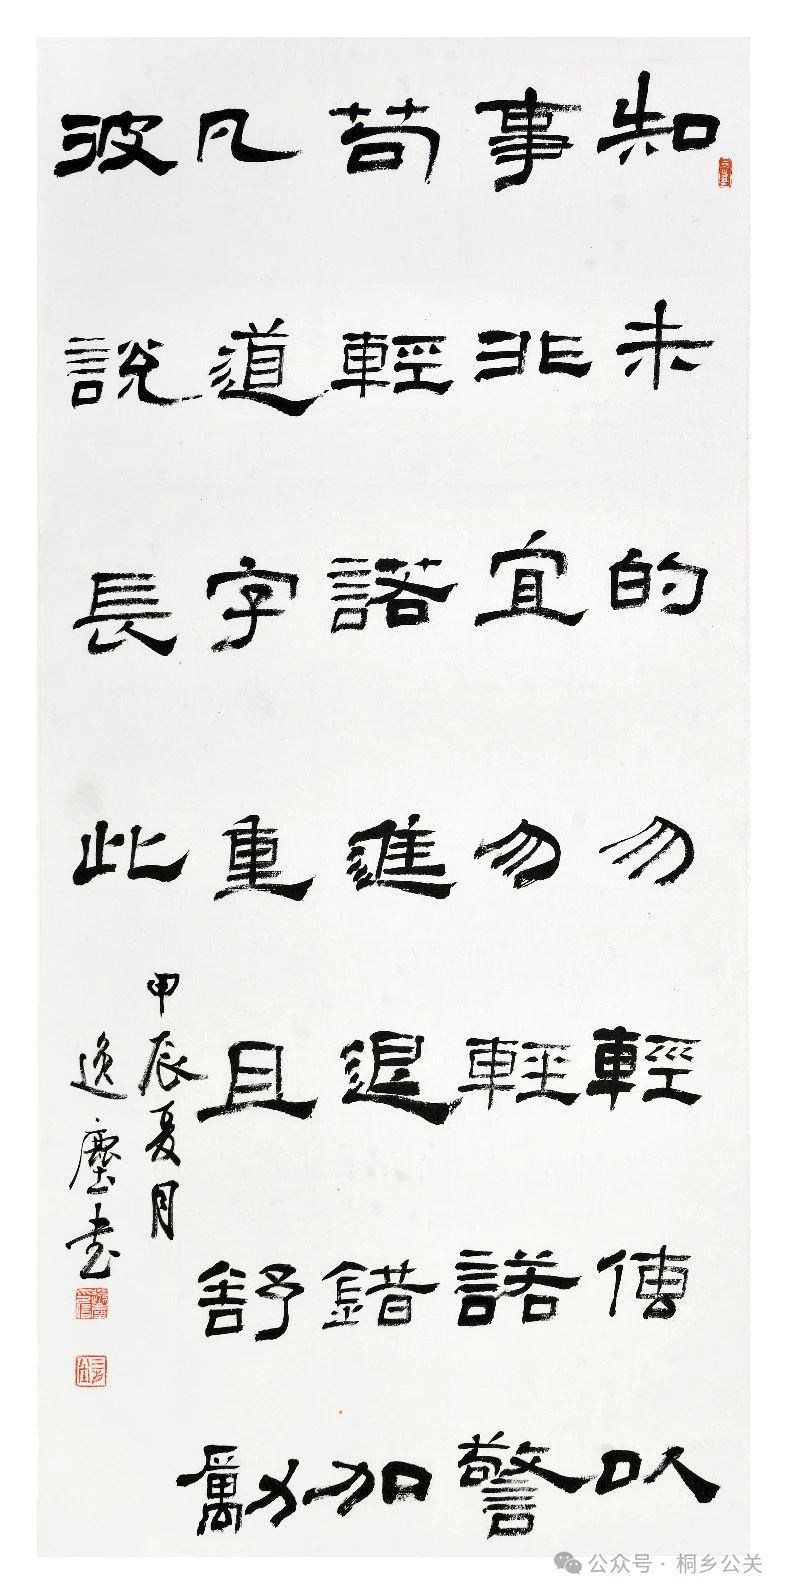 知未的勿輕傳以
事非宜勿輕諾警
苟輕諾進退錯加
凡道字重且舒勵
波說長此
甲辰夏月
逸塵书
公众号 · 桐乡公关